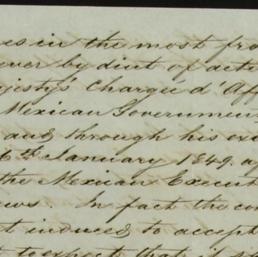 in the most
by dint of
Chargé d'Aff
Mexican Governmen
and through his
6th January 1849.
the Mexican Execut
In fact the co
induced to accept
to expect that it